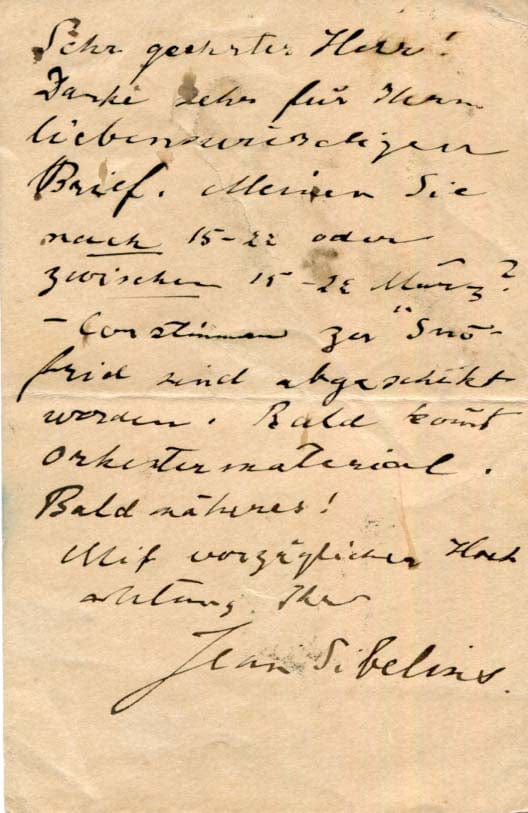 Sehr geehrter Herr!
Danke sehr für Ihren
liebenswürdigen
Brief. Meinen Sie
nach 15-22 oder
zwischen 15-22 März?
- Corstimmen zur "Snö-
frid sind abgeschikt
worden. Bald komt
Orkestermaterial.
Bald näheres!
Mit vorzüglicher Hoch
achtung Ihr
Jean Sibelius.